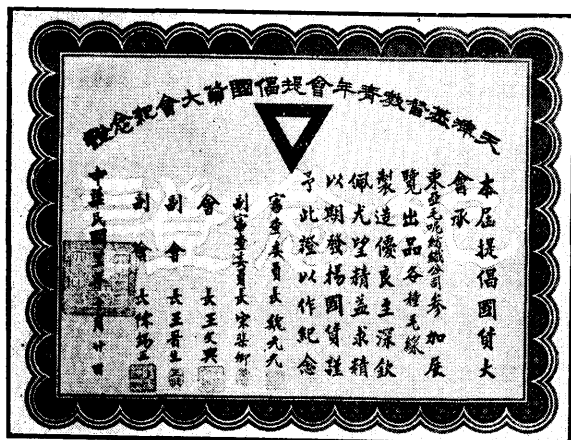 天津基督教青年會提倡國貨大會紀念證
本屆提倡國貨大
會承
東亞毛呢紡織公司參加展
覽出品各種毛線
製造優良至深欽
佩尤望精益求精
以期發揚國貨謹
予此證以作紀念
審查委員長
副審查委員長 宋棐卿
會長 王文典
副會長 王晋生
副會長
中華民國 年 月 廿 日